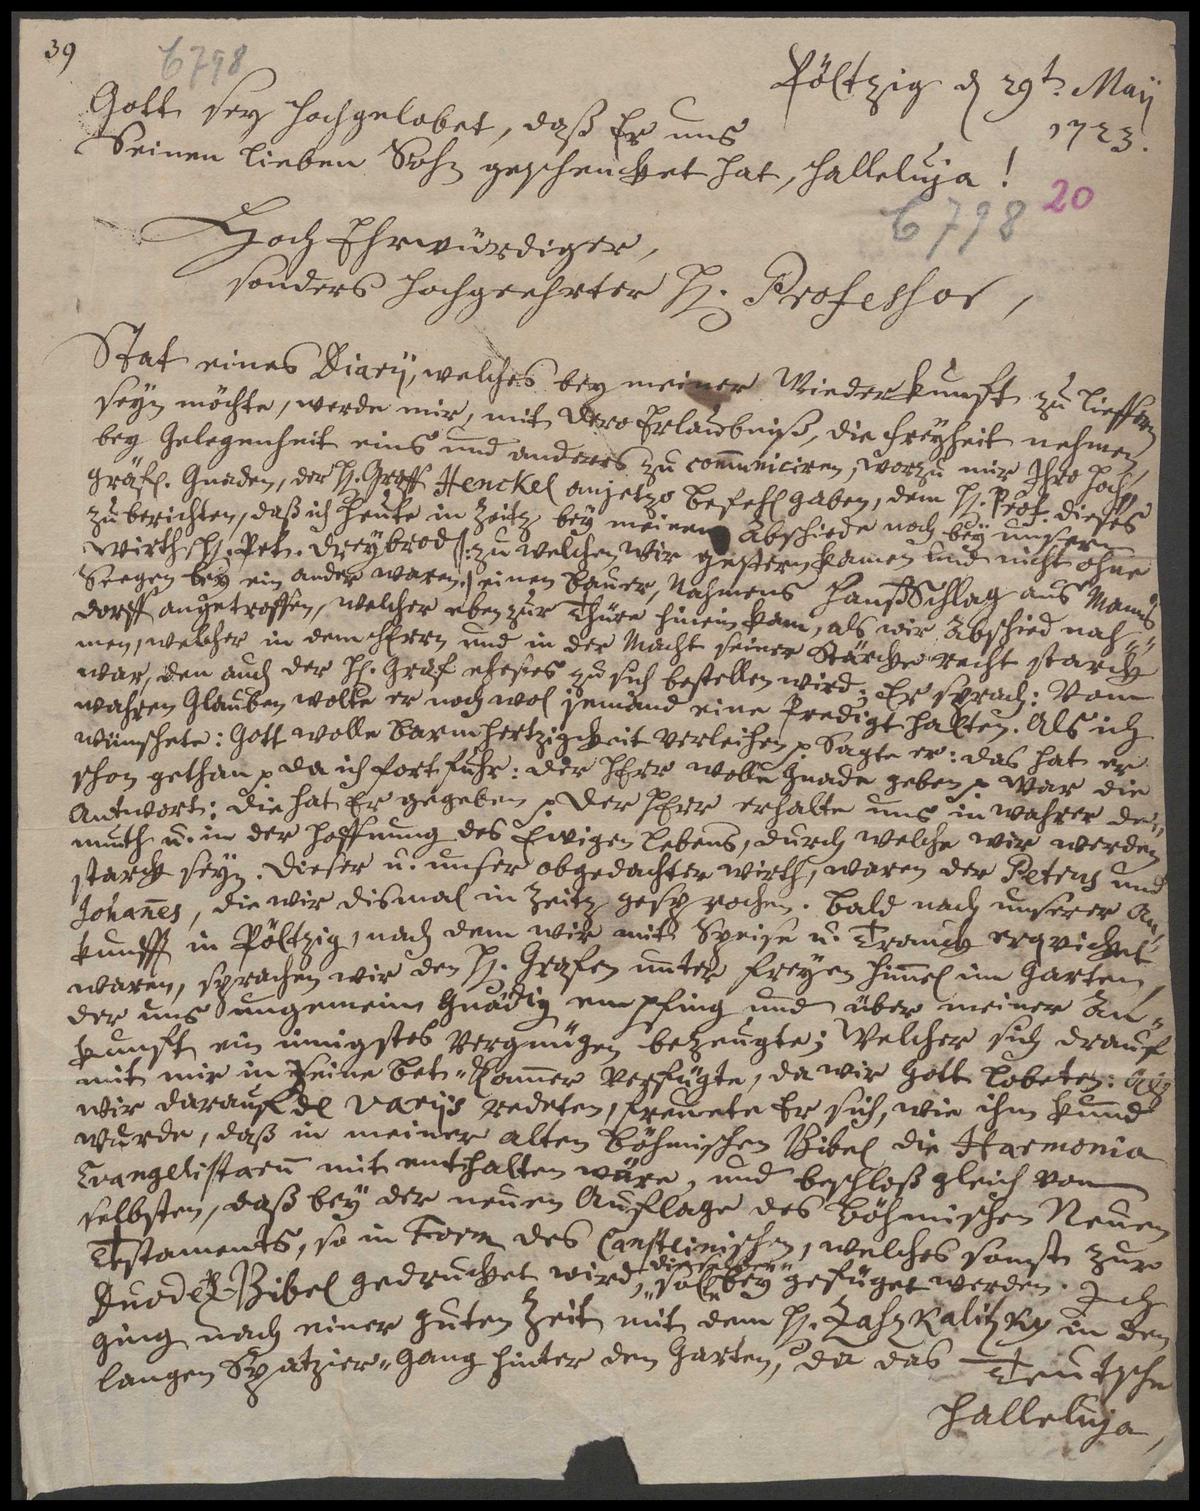 39
6798
Pöltzig d 29t. Maij
1723.
Gott sey hochgelobet, daß Er uns
Seinen lieben Sohn geschencket hat, Halleluja!
20
6798
HochEhrwürdiger,
sonders hochgeehrter H. Professor,
Stat eines Diarij, welches bey meiner Wiederkunft zu lieffern
seyn möchte, werde mir, mit Dero Erlaubniß, die Freyheit nehmen,
bey Gelegenheit eins und anders zu communiciren, worzu mir Ihro Hoch-
gräfl. Gnaden, der H. Graff Henckel anjetzo Befehl gaben, dem H. Prof. dieses
zu berichten, daß ich heute in Zeitz bey meinem Abschiede noch bey unserm
Wirth H. Petr. Dreybrod /: zu welchen wir gestern kamen und nicht ohne
Seegen bey ein ander waren :/ einen Bauer, Nahmens Hanß Schlag aus Manns
dorff angetroffen, welcher eben zur Thüre hinein kam, als wir Abschied nah-
men, welcher in dem HErrn und in der Macht seiner Stärcke recht starck
war, den auch der H. Graf ehestes zu sich bestellen wird. Er sprach: Vom
wahren Glauben wolle er noch wol jemand eine Predigt halten. Als ich
wünschete: Gott wolle Barmhertzigkeit verleihen p sagte er: das hat er
schon gethan p da ich fortfuhr: der HErr wolle Gnade geben p war die
Antwort: die hat Er gegeben p Der HErr erhalte uns in wahrer De-
muth u. in der Hoffnung des Ewigen Lebens, durch welche wir werden
starck seyn. Dieser u. unser obgedachter Wirth, waren der Petrus und
Johannes, die wir dismal in Zeitz gesprochen. Bald nach unserer An-
kunfft in Pöltzig, nach dem wir mit Speise u. Tranck erqvicket
waren, sprachen wir den H. Grafen unter freyen Himmel im Garten,
der uns ungemein Gnädig empfing und über meiner An-
kunft ein innigstes Vergnügen bezeugte; Welcher sich drauf
mit mir in seine Bet-Kammer verfügte, da wir Gott lobeten: Als
wir darauf de variis redeten, freuete Er sich, wie ihm kund
wurde, daß in meiner alten Böhmischen Bibel die Harmonia
Evangelistarum mit enthalten wäre, und beschloß gleich von
selbsten, daß bey der neuen Auflage des Böhmischen Neuen
Testaments, so in Form des Cansteinischen, welches sonst zur
Duodez-Bibel gedrucket wird, dieselbe soll bey gefüget werden. Ich
ging nach einer guten Zeit mit dem H. in den
langen Spatzier-Gang hinter den Garten, da das Teutsche
Halleluja,